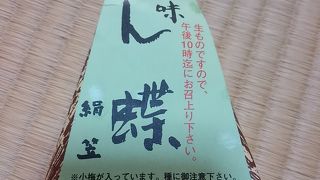 生ものですので、
午後10時迄にお召上り下さい。
味
ん蝶
絹笠
※小梅が入っています。種に御注意下さい。